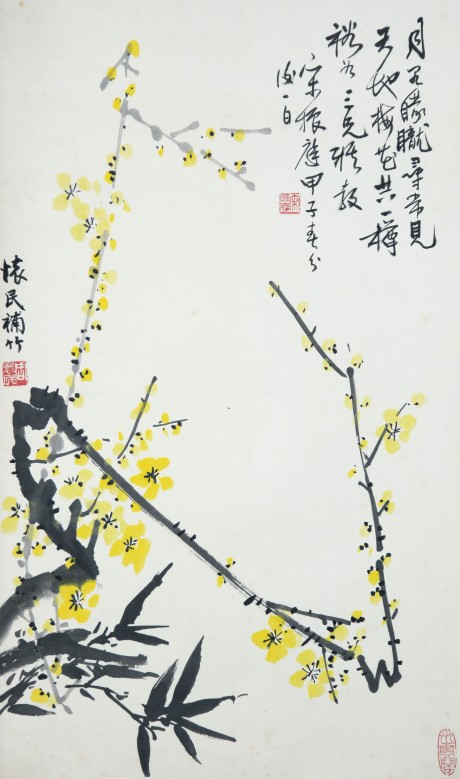 月色朦朧尋常見
天地梅花共一樽
裕 三兄雅教
宋振庭甲子春分
後一日
懷民補竹